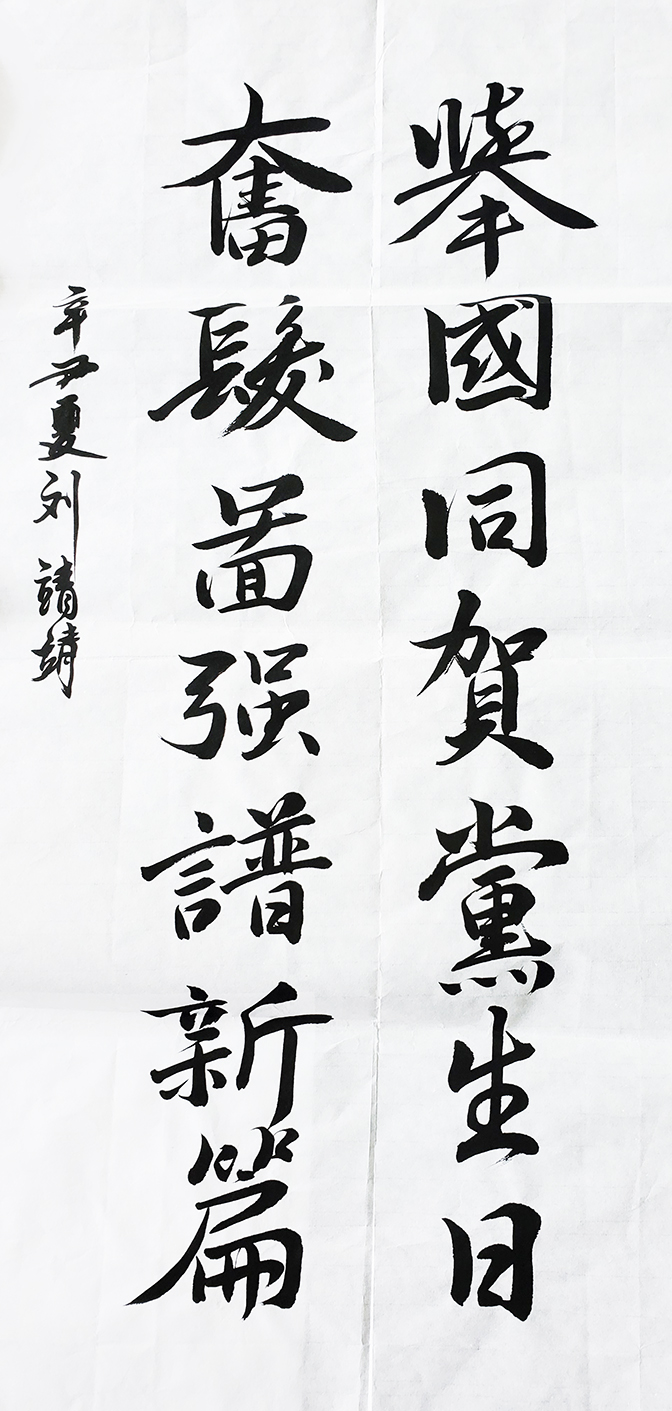 舉國同賀黨生日
奮髮啚强譜新篇
辛丑夏刘靖靖